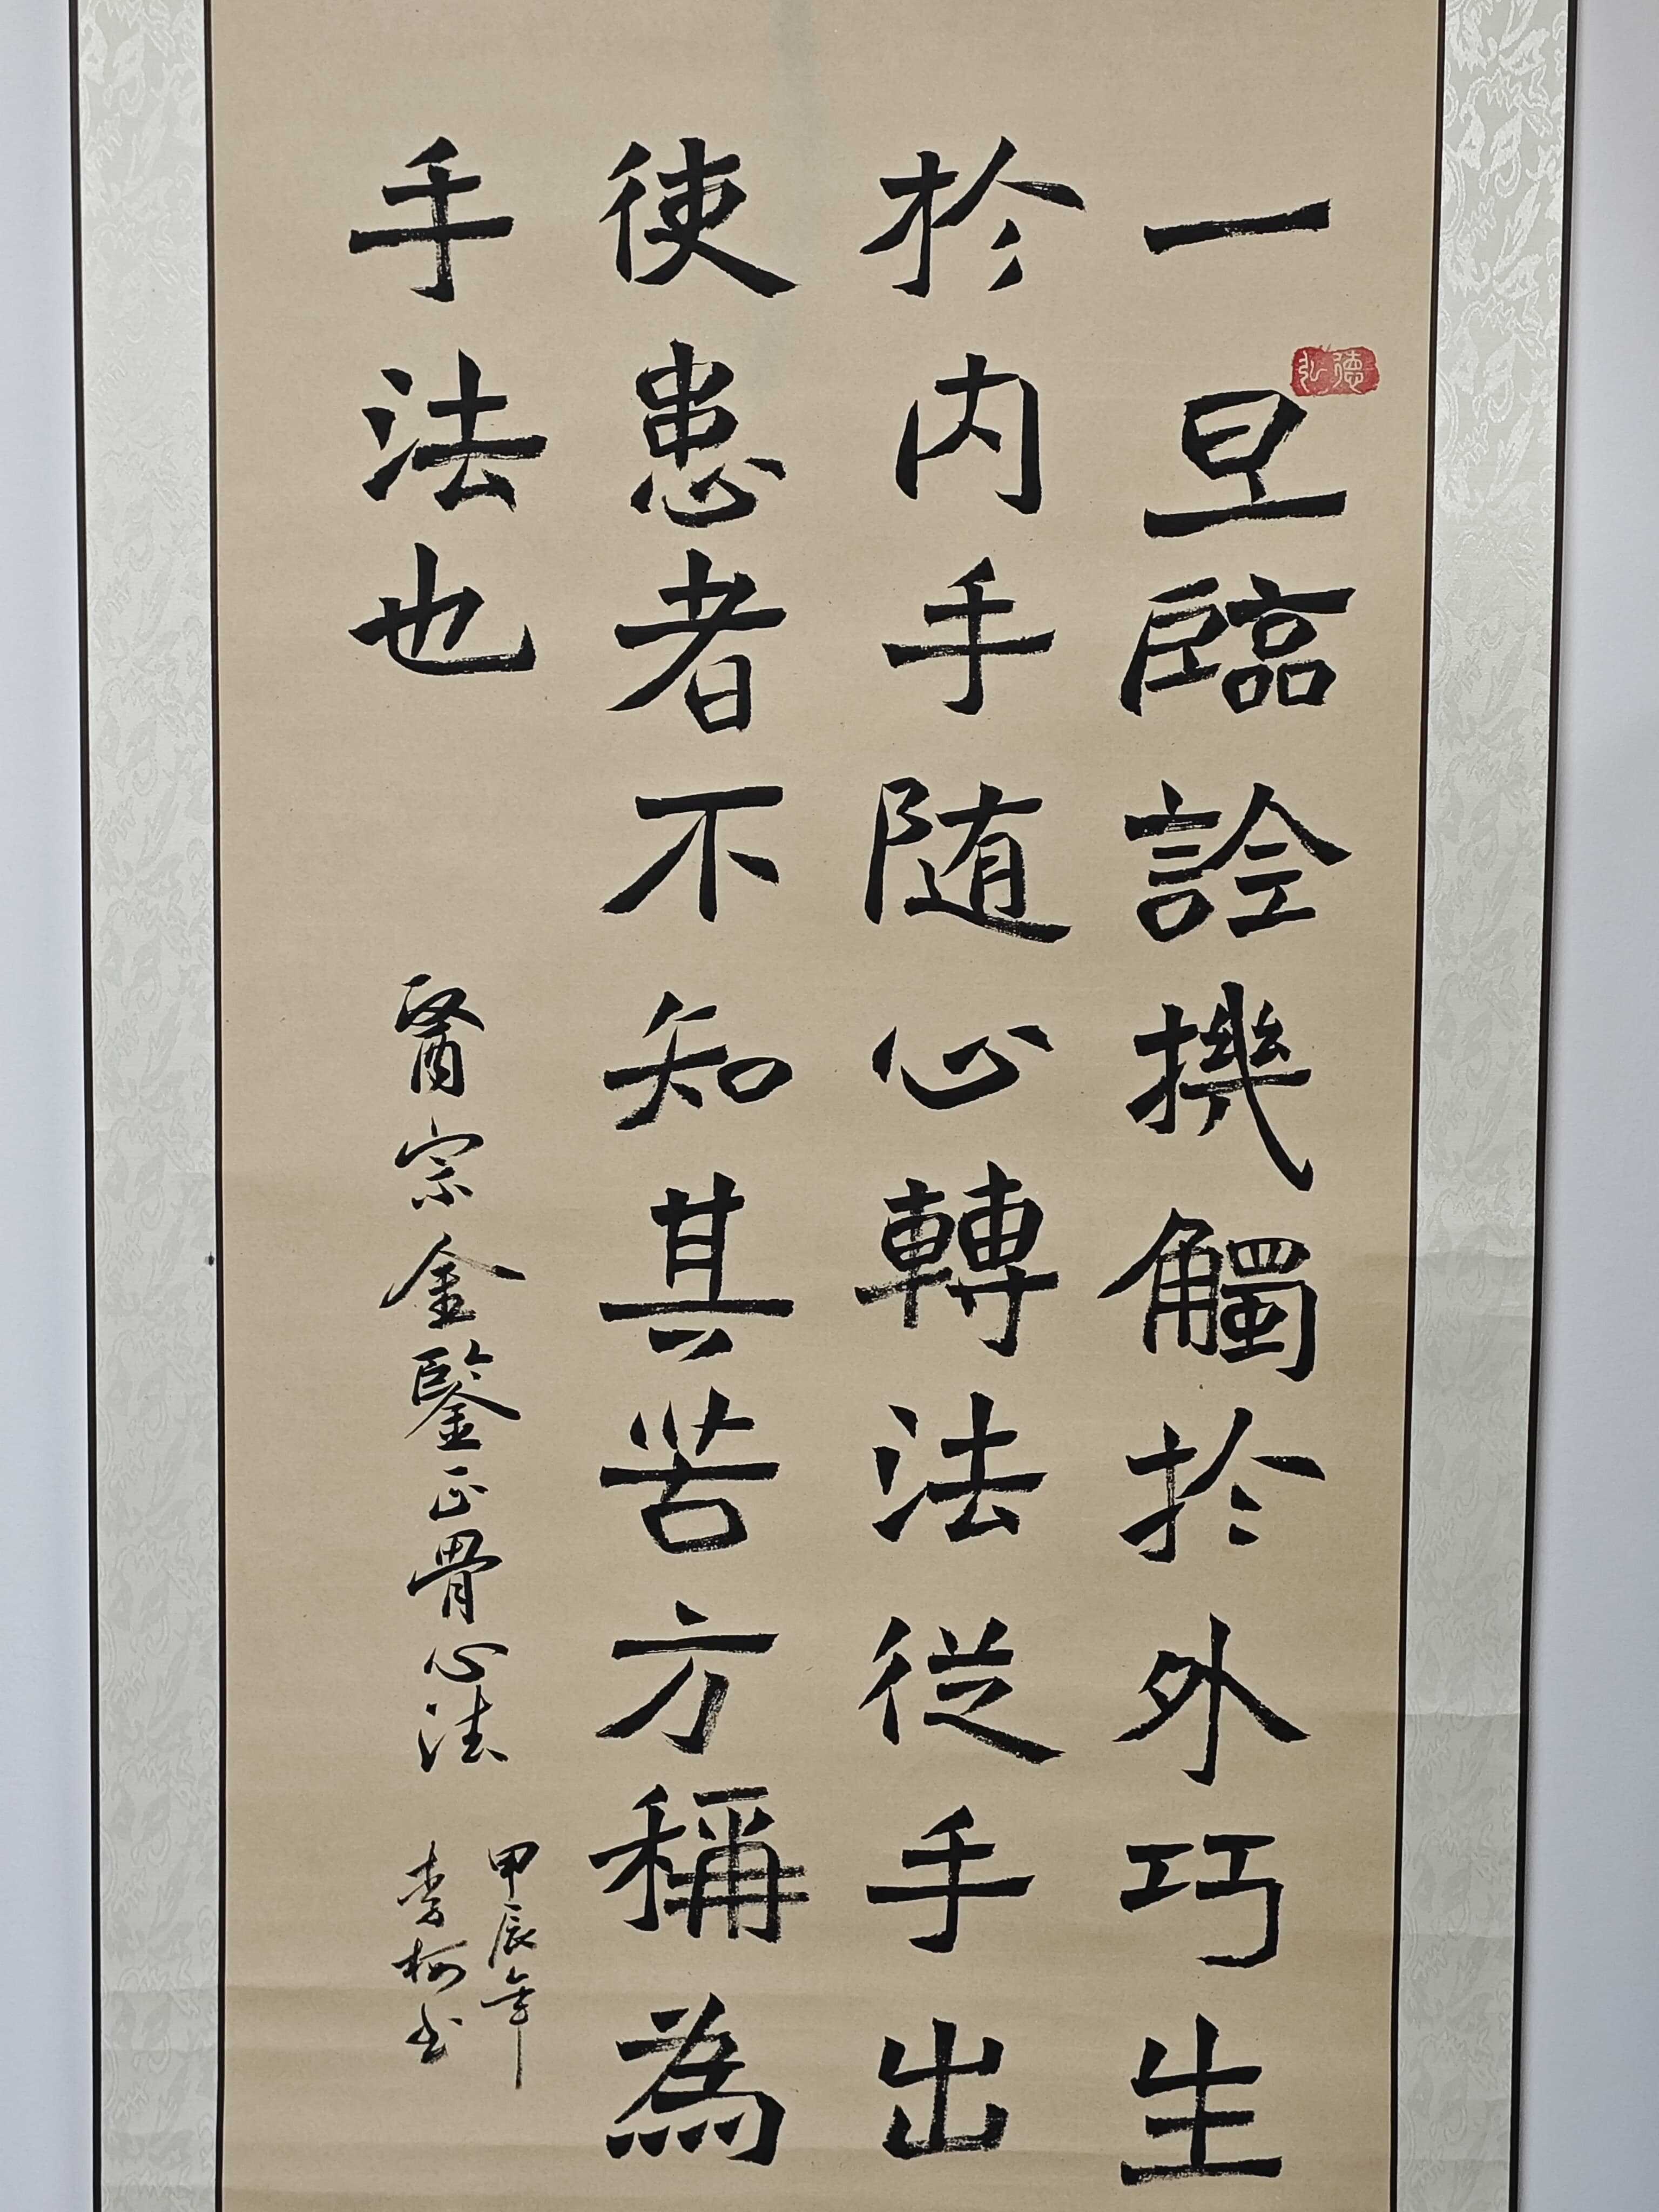 德弘
一旦臨詮機觸於外巧生
於内手随心轉法従手出
使患者不知其苦方稱為
手法也
醫宗金鑒正骨心法
甲辰年
李柯书